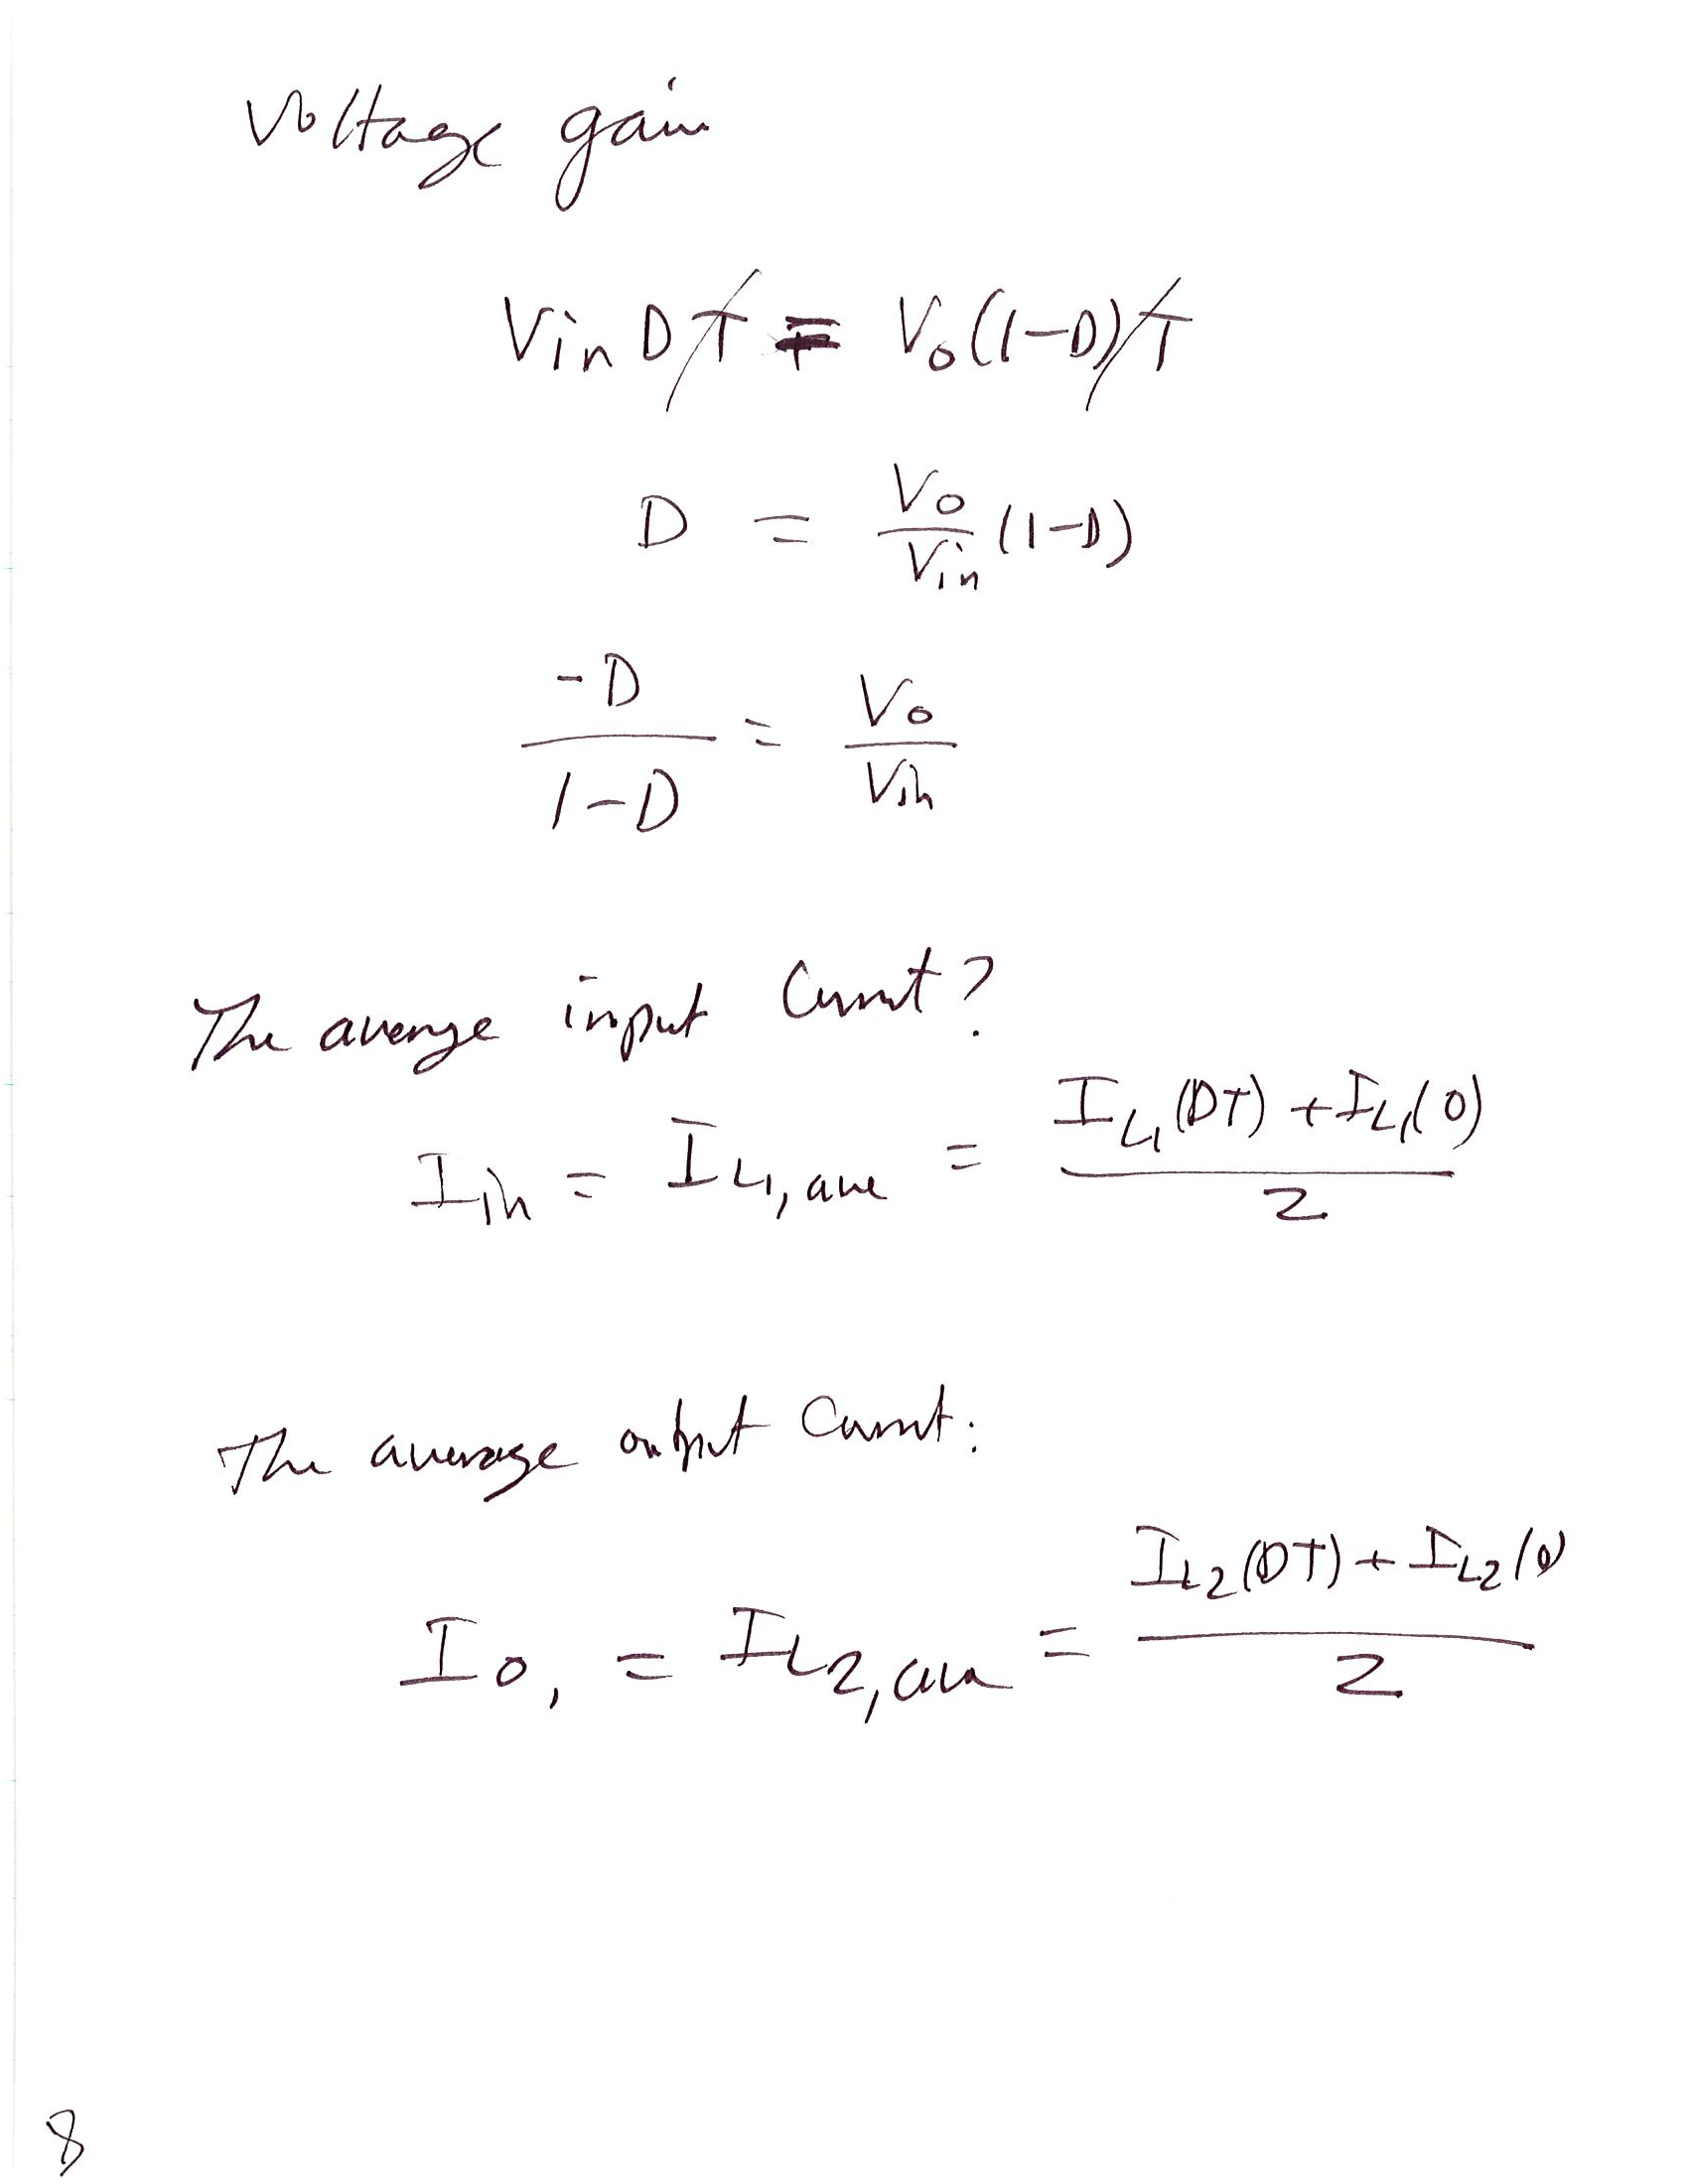 Voltage gain
Vin D T = Vo(1-D) T
D = Vo/Vin (1-D)
-D/1-D = Vo/Vin
The average input Current?
Iin = IL1, ave = IL1(DT) + IL1(0) / 2
The average output Current:
Io, = IL2, ave = IL2(DT) + IL2(0) / 2
8